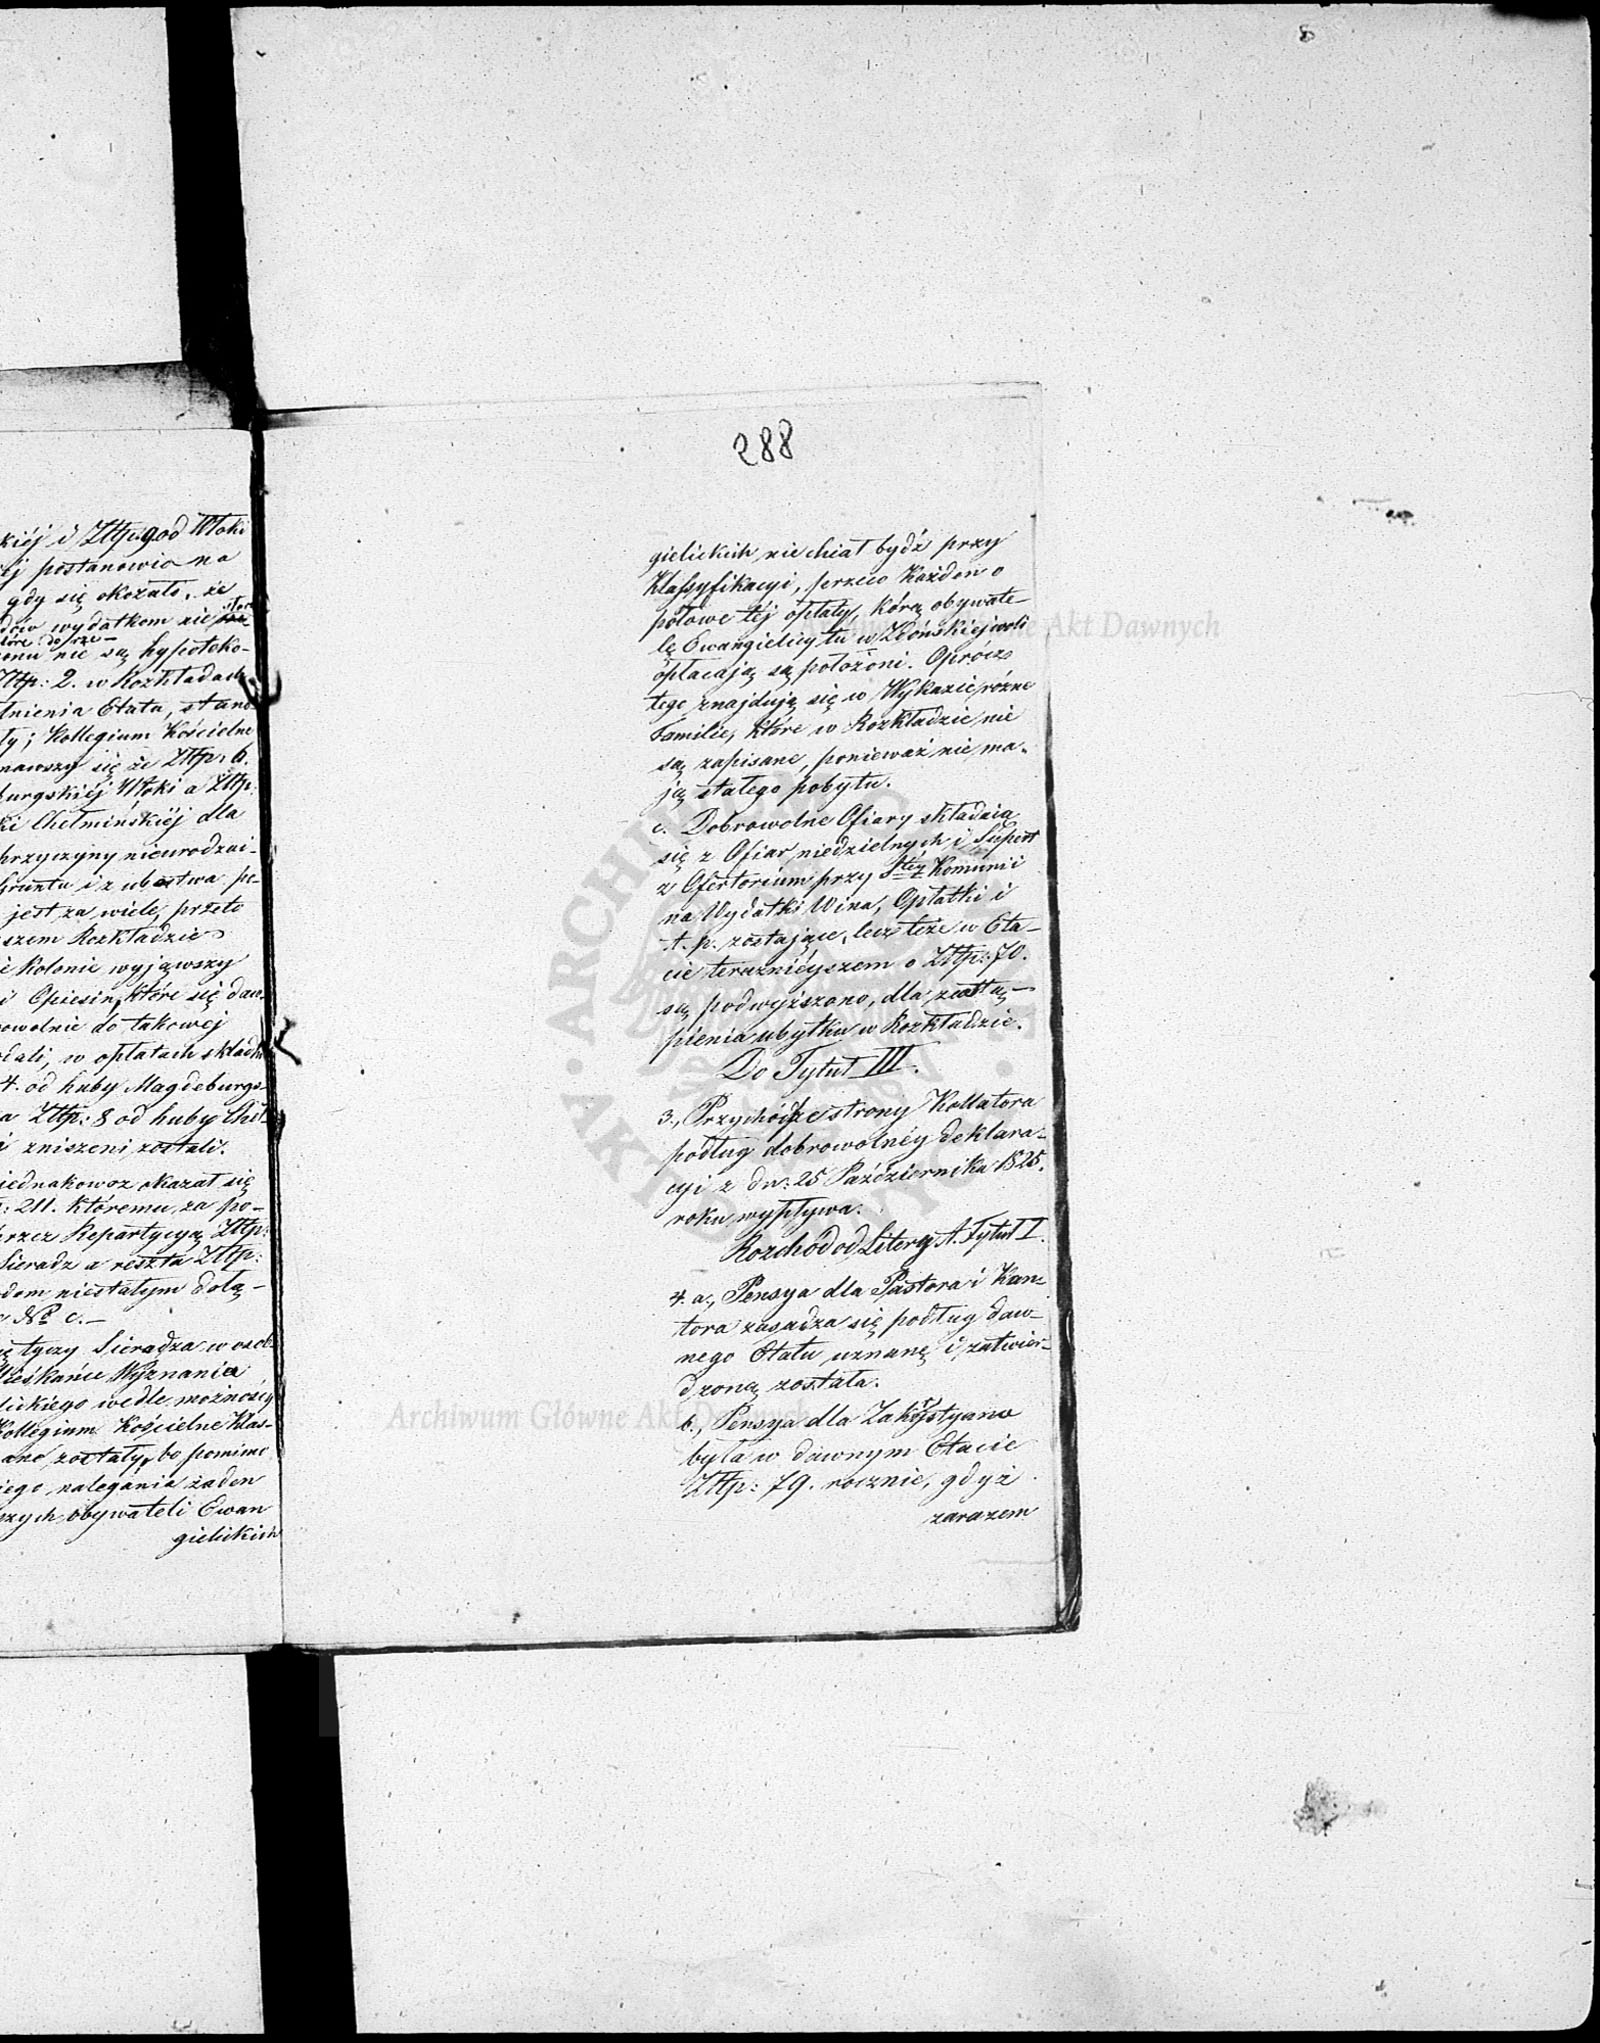 kiéj i Złtp: 9 od Włoki
éj postanowio na
gdy się okazało, że
dów wydatkom nie
które do rze-
onu nie są hypoteko-
Złtp: 2. w Rozkładach
łnienia Etatu, stano
ły; Kollegium Kościelne
nawszy się że Złtp: 6.
burgskiéj Włoki a Złtp:
ki Chełmińskiéj dla
przyczyny nieurodzai-
Gruntu i z ubóstwa po-
jest za wiele, przeto
szem Rozkładzie
é Kolonie wyjąwszy
i Opiesin, które się daw-
owolnie do takowej
dali, w opłatach składki
4. od huby Magdeburgs-
a Złtp: 8 od huby Cheł-
i zniszeni zostali.
jednakowoz okazał się
: 211. któremu za po-
przez Repartycyą Złtp:
Sieradz a reszta Złtp:
dom niestałym dołą-
r No c. —
ię tyczy Sieradza w osob-
Mieskańce Wyznania
lickiego wedle możności
Kollegium Kościelne Klas-
ane zostały, bo pomimo
iego nalegania żaden
szych obywateli Ewan
gielickich
288
gielickich nie chiał bydź przy
Klassyfikacyi, przeco każden o
połowe téj opłaty, kórą obywate-
lę Ewangielicy tu w Zdońskiejwoli
opłacają są położoni. Oprócz
tego znajdują się w Wykazie różne
Familie, które w Rozkładzie nie
są zapisane, ponieważ nie ma-
ją stałego pobytu.
c. Dobrowolne Ofiary składaią
się z Ofiar niedzielnych i
z Ofertorium przy Stéj Komunii
na Wydatki Wina, Opłatki i
t. p. zostające, lecz teże w Eta-
cie teraznieyszem o Złtp: 70.
są podwyższono, dla zastą-
pienia ubytku w Rozkładzie.
Do Tytuł III.
3., Przychód ze strony Kollatora
podług dobrowolnéy deklara-
cyi z dn: 25 Października 1825.
roku wypływa.
Rozchód od Litery A. Tytuł I.
4. a., Pensya dla Pastora i Kan-
tora zasadza się podług daw-
nego Etatu uznanę i zatwier-
dzoną została.
b., Pensya dla Zakrystyana
była w dawnym Etacie
Złtp: 79. rocznie, gdyż
zarazem
Archiwum Główne Akt Dawnych
Archiwum Główne Akt Dawnych